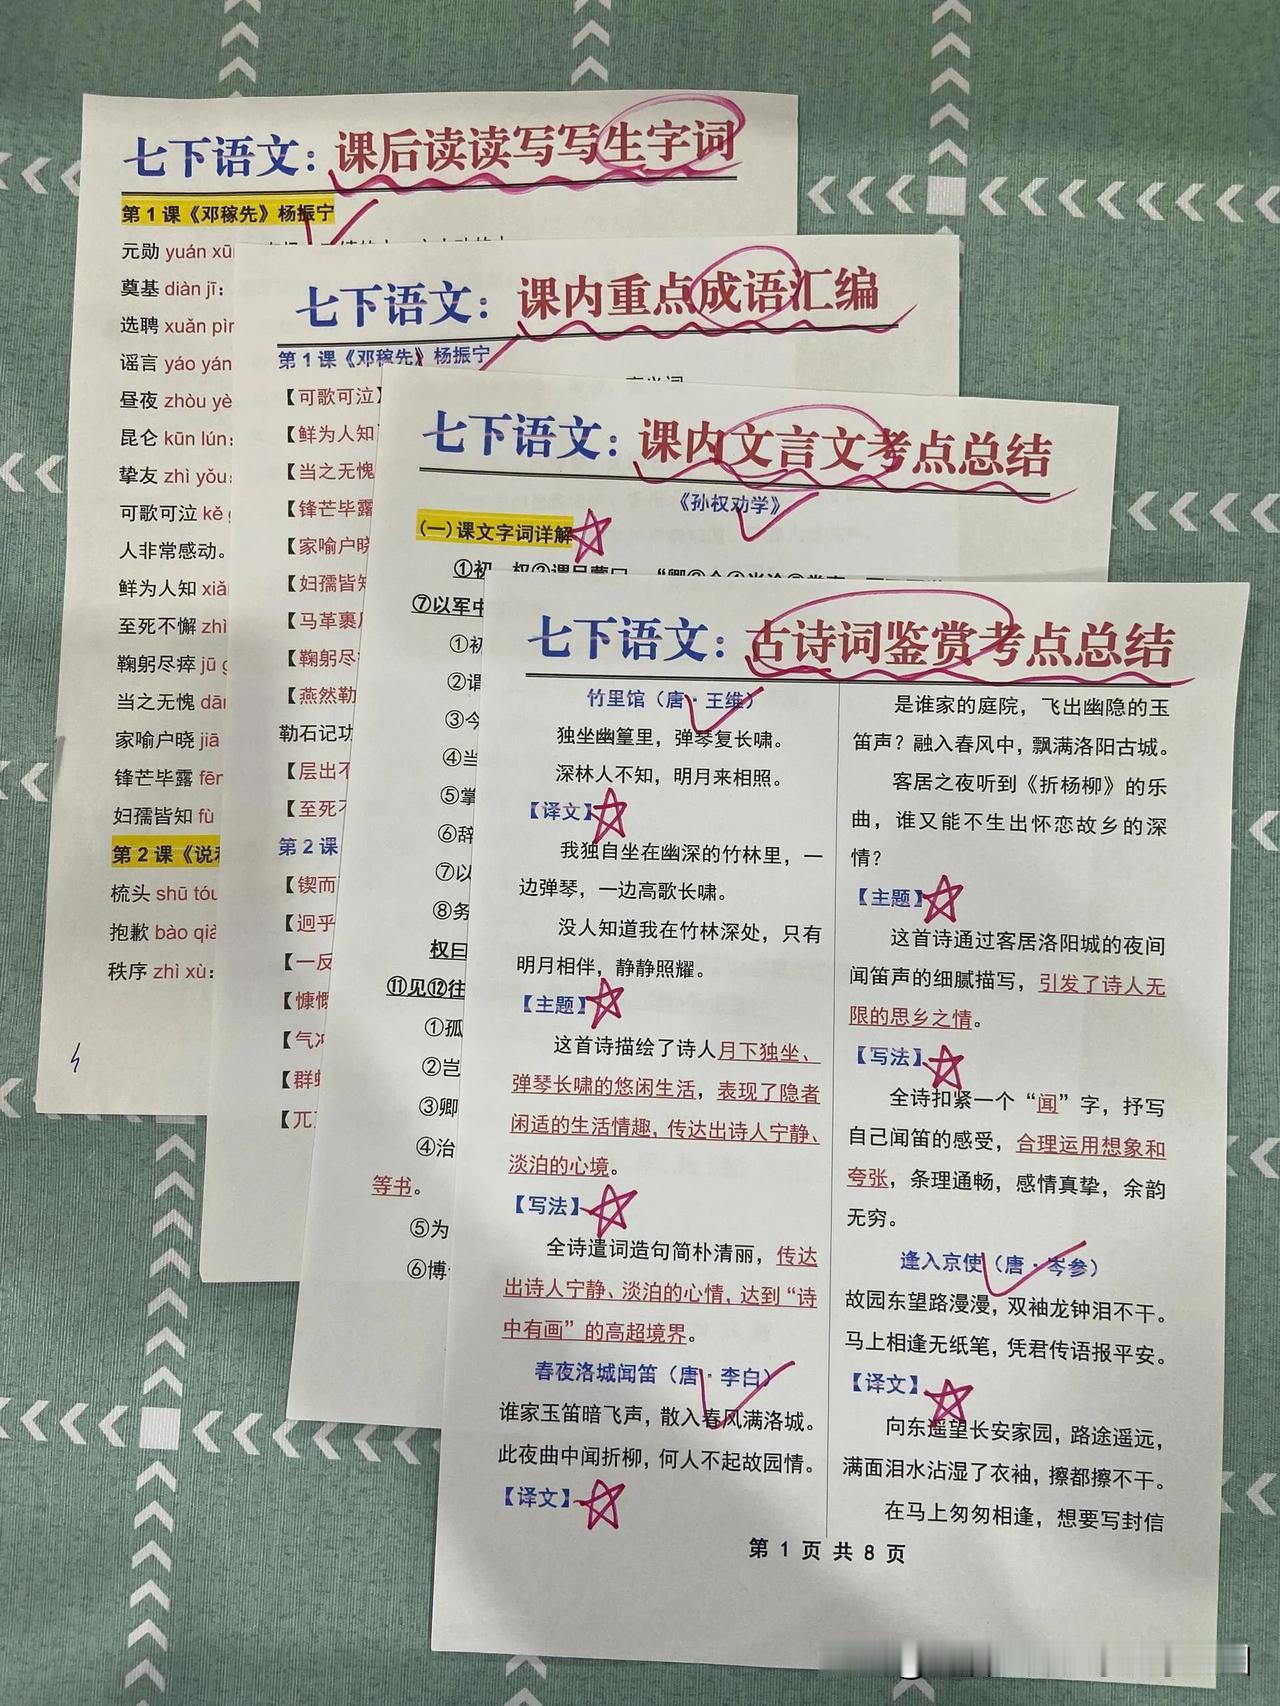 七下语文：课后读读写写生字词
第1课《邓稼先》杨振宁
元勋 yuán xū
奠基 diàn jī：
选聘 xuǎn pìn
谣言 yáo yán
昼夜 zhòu yè
昆仑 kūn lún：
挚友 zhì yǒu：
可歌可泣 kě
人非常感动。
鲜为人知 xiǎ
至死不懈 zhì
鞠躬尽瘁 jū
当之无愧 dān
家喻户晓 jiā
锋芒毕露 fēn
妇孺皆知 fù
第2课《说和
梳头 shū tóu
抱歉 bào qià
秩序 zhì xù：
七下语文：课内重点成语汇编
第1课《邓稼先》杨振宁
【可歌可泣】
【鲜为人知】
【当之无愧
【锋芒毕露
【家喻户晓
【妇孺皆知
【马革裹
【鞠躬尽
【燕然勒
勒石记功
【层出不
【至死不
第2课
【锲而
【迥乎
【一反
【慷慨
【气冲
【群蚁
【兀
七下语文：课内文言文考点总结
《孙权劝学》
（一）课文字词详解
①初，权②谓吕蒙曰
⑦以军中
①初
②谓
③今
④当
⑤掌
⑥辞
⑦以
⑧务
权曰
⑪见⑫往
①孤
②岂
③卿
④治
等书。
⑤为
⑥博
七下语文：古诗词鉴赏考点总结
竹里馆（唐·王维）
独坐幽篁里，弹琴复长啸。
深林人不知，明月来相照。
【译文】
我独自坐在幽深的竹林里，一
边弹琴，一边高歌长啸。
没人知道我在竹林深处，只有
明月相伴，静静照耀。
【主题】
这首诗描绘了诗人月下独坐、
弹琴长啸的悠闲生活，表现了隐者
闲适的生活情趣，传达出诗人宁静、
淡泊的心境。
【写法】
全诗遣词造句简朴清丽，传达
出诗人宁静、淡泊的心情，达到“诗
中有画”的高超境界。
春夜洛城闻笛（唐·李白）
谁家玉笛暗飞声，散入春风满洛城。
此夜曲中闻折柳，何人不起故园情。
【译文】
是谁家的庭院，飞出幽隐的玉
笛声？融入春风中，飘满洛阳古城。
客居之夜听到《折杨柳》的乐
曲，谁又能不生出怀恋故乡的深
情？
【主题】
这首诗通过客居洛阳城的夜间
闻笛声的细腻描写，引发了诗人无
限的思乡之情。
【写法】
全诗扣紧一个“闻”字，抒写
自己闻笛的感受，合理运用想象和
夸张，条理通畅，感情真挚，余韵
无穷。
逢入京使（唐·岑参）
故园东望路漫漫，双袖龙钟泪不干。
马上相逢无纸笔，凭君传语报平安。
【译文】
向东遥望长安家园，路途遥远，
满面泪水沾湿了衣袖，擦都擦不干。
在马上匆匆相逢，想要写封信
第 1 页 共 8 页